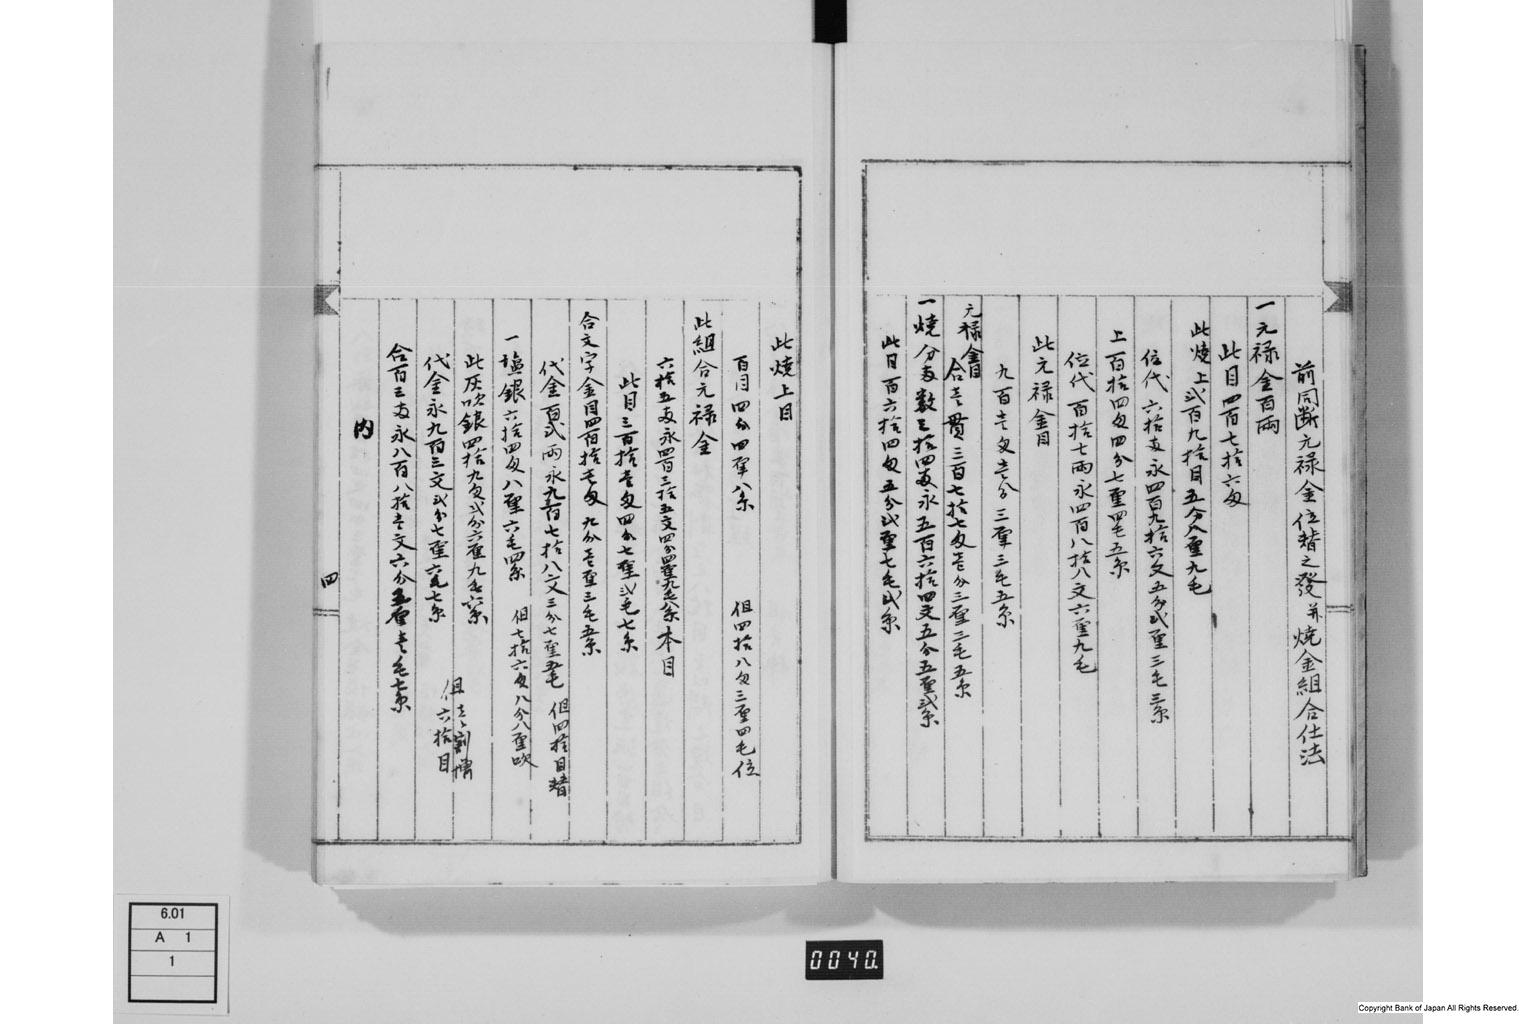 前同断元禄金位替之發并焼金組合仕法
一元禄金百両
此目四百七拾六匁
此焼上弐百九拾目五分八厘九毛
位代六拾両永四百九拾六文五分弐厘三毛三糸
上百拾四匁四分七厘四毛五糸
位代百拾七両永四百八拾八文六厘九毛
此元禄金目
九百壱匁壱分三厘三毛五糸
元禄金目
合壱貫三百七拾七匁壱分三厘三毛五糸
一焼分両数三拾四両永五百六拾四文五分五厘弐糸
此目百六拾四匁五分弐厘七毛弐糸
此焼上目
百目四分四厘八糸 但四拾八匁三厘四毛位
此組合元禄金
六拾五両永四百三拾五文四分四厘九毛八糸本目
此目三百拾壱匁四分七厘弐毛七糸
合文字金目四百拾壱匁九分壱厘三毛五糸
代金百弐両永九百七拾八文三分七厘五毛 但四拾目替
一塩銀六拾四匁八厘六毛四糸 但七拾六匁八分八厘吹
此灰吹銀四拾九匁弐分六厘九毛六糸
但壱割増
六拾目
代金永九百三文弐分七厘六毛七糸
合百三両永八百八拾壱文六分五厘壱毛七糸
内
四
6.01
A 1
1
0040.
Copyright Bank of Japan All Rights Reserved.